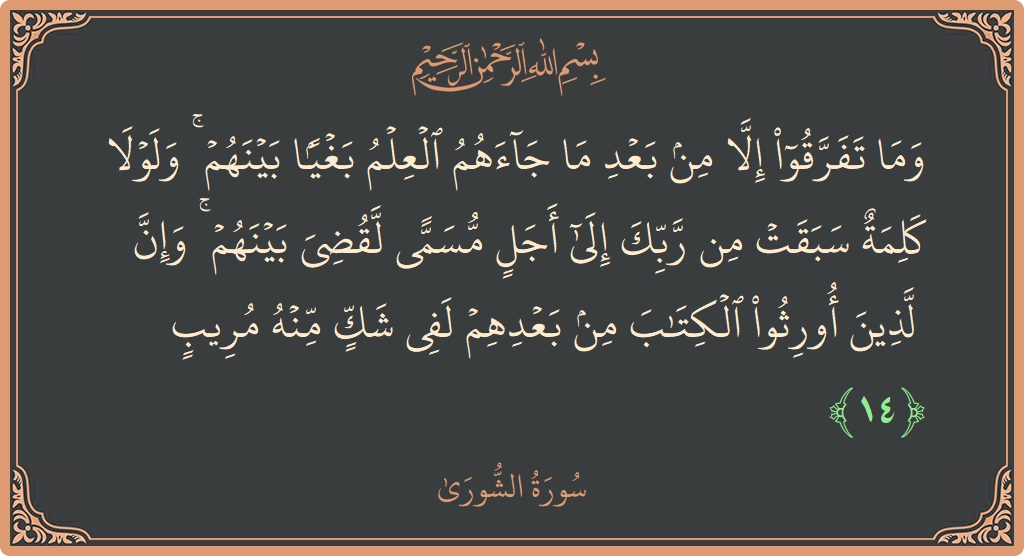 بِسْمِ اللَّهِ الرَّحْمَٰنِ الرَّحِيمِ
وَمَا تَفَرَّقُوٓا۟ إِلَّا مِنۢ بَعْدِ مَا جَآءَهُمُ ٱلْعِلْمُ بَغْيًۢا بَيْنَهُمْ ۚ وَلَوْلَا
كَلِمَةٌ سَبَقَتْ مِن رَّبِّكَ إِلَىٰٓ أَجَلٍ مُّسَمًّى لَّقُضِىَ بَيْنَهُمْ ۚ وَإِنَّ
لَّذِينَ أُورِثُوا۟ ٱلْكِتَٰبَ مِنۢ بَعْدِهِمْ لَفِى شَكٍّ مِّنْهُ مُرِيبٍ
﴿١٤﴾
سُورَةُ الشُّورَىٰ